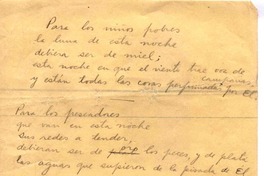 Para los niños pobres
la luna de esta noche
debiera ser de miel;
esta noche en que el viento trae voz de
campanas,
y están todas las cosas perfumadas por El.
Para los pescadores
que van en esta noche
sus redes a tender,
debieran ser de oro los peces, y de plata
las aguas que supieron de la pisada de El